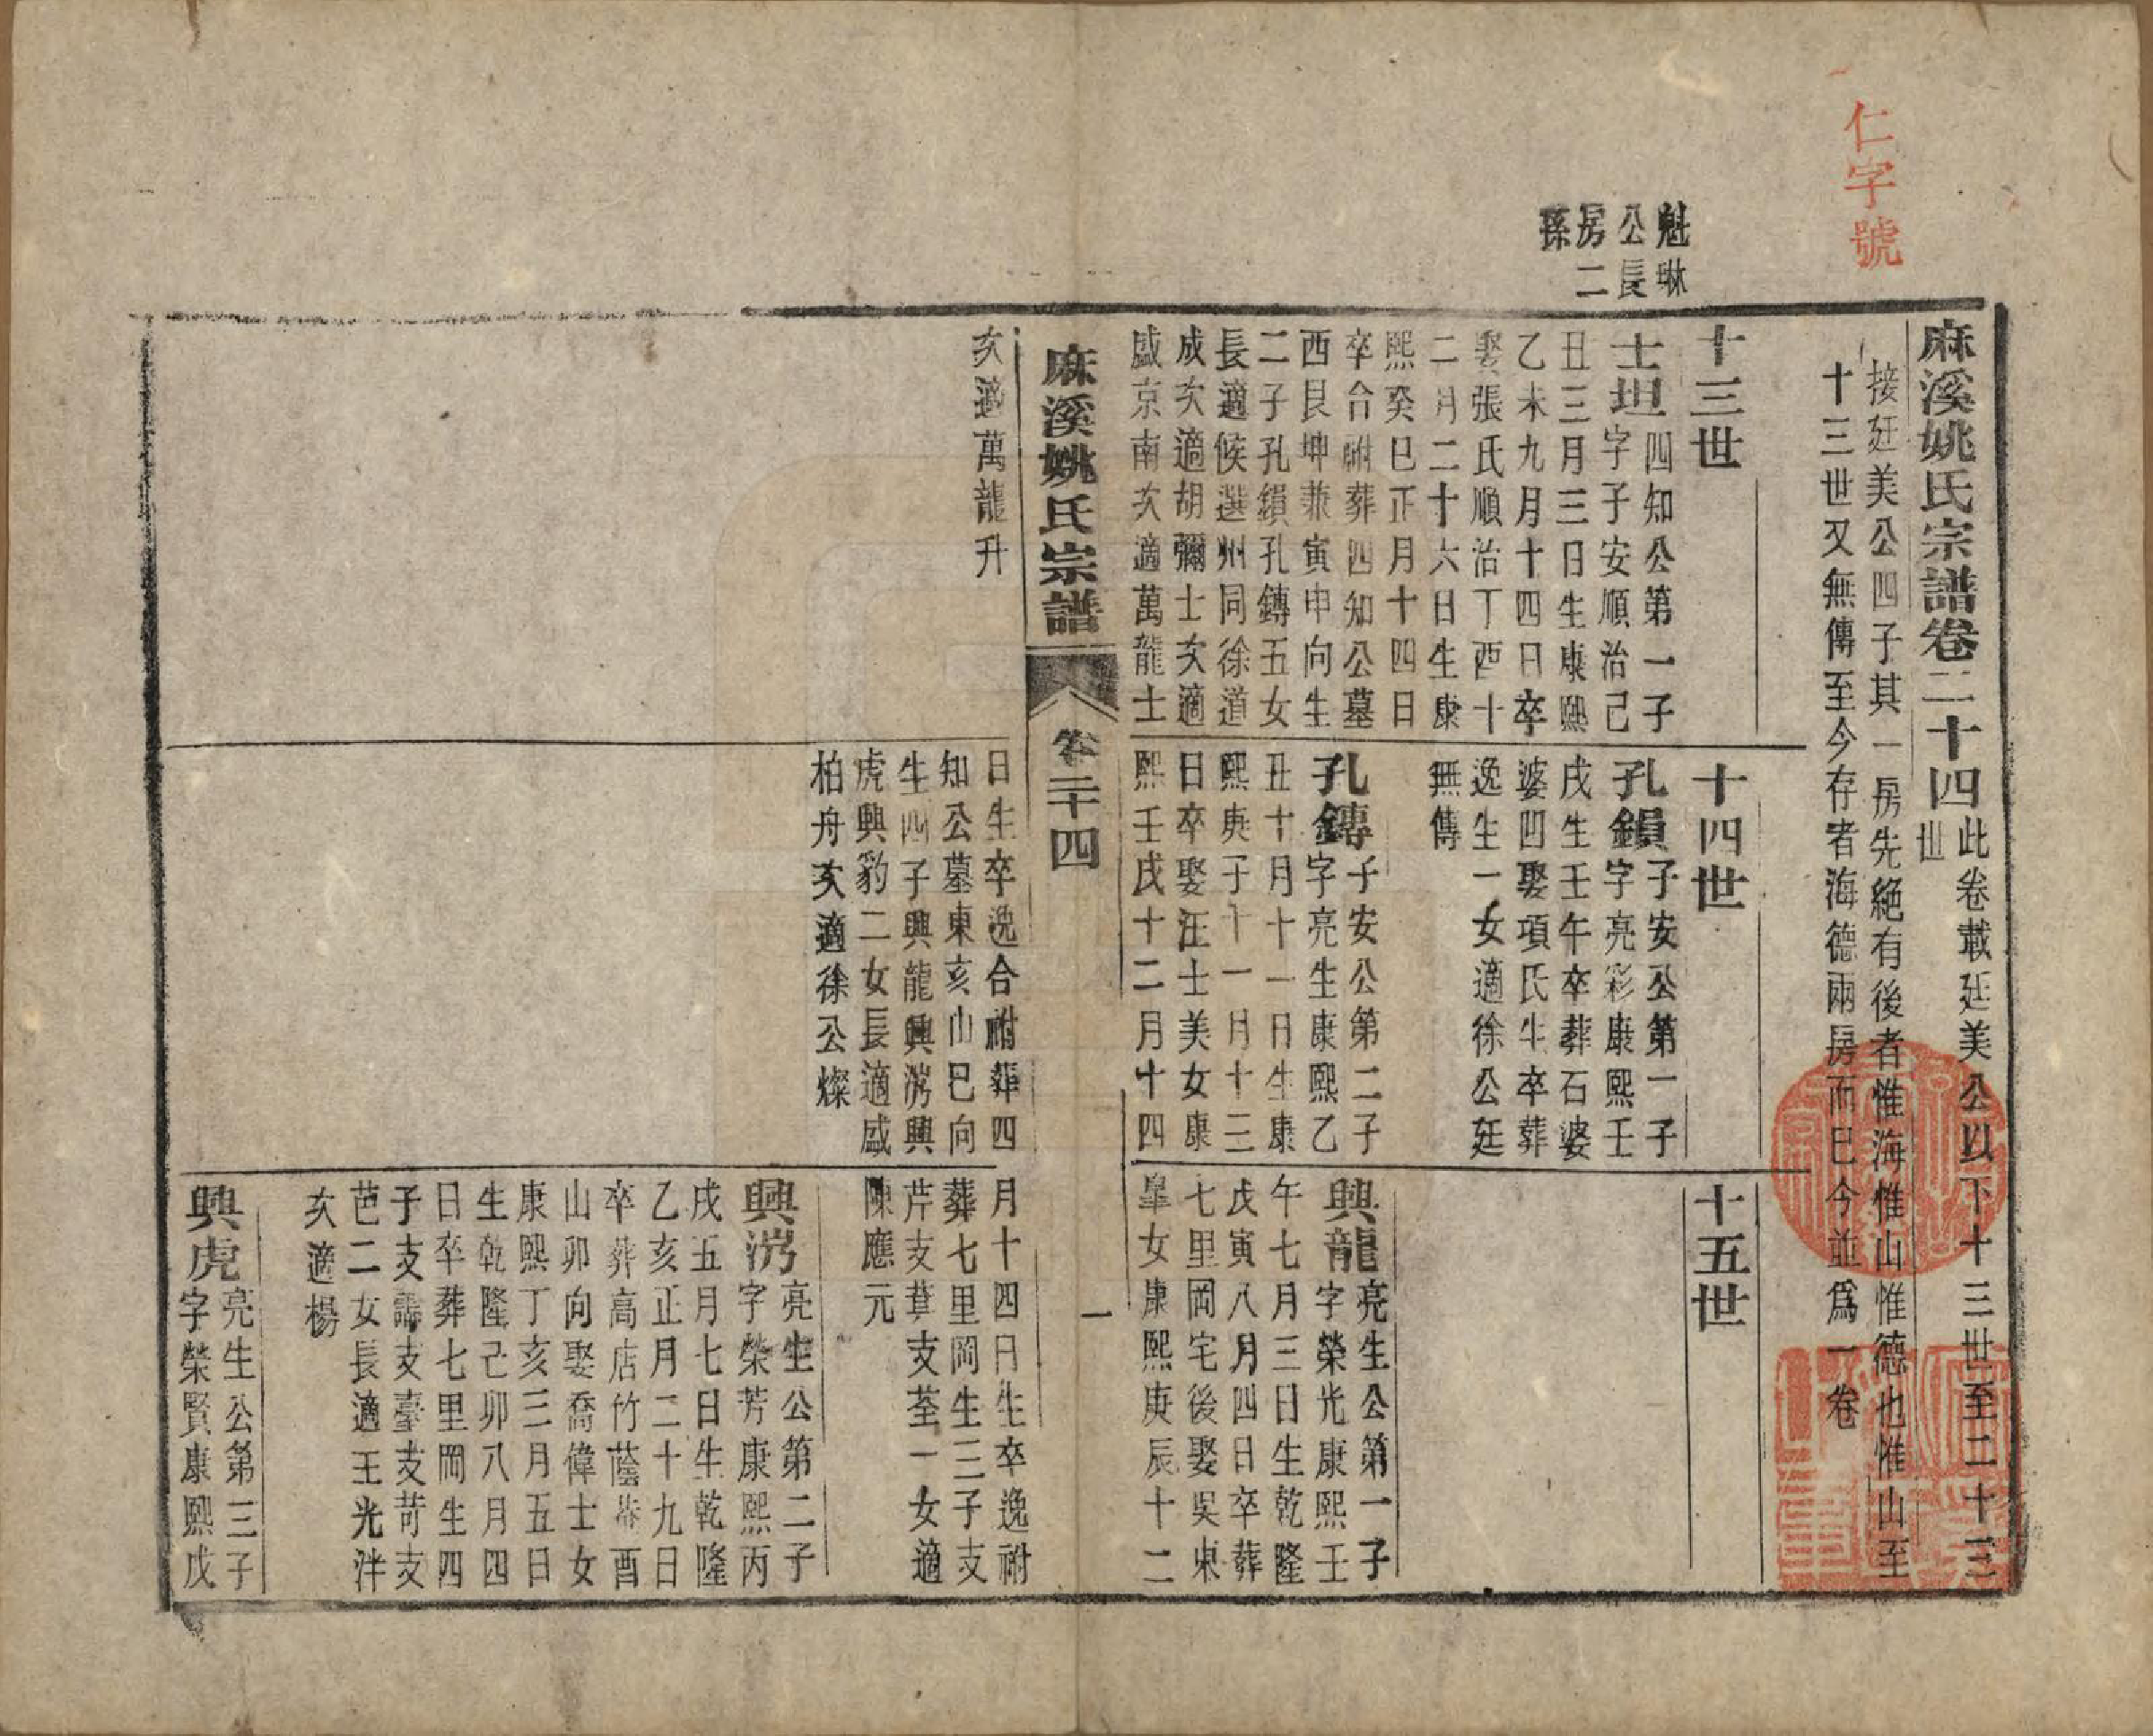 仁字號
魁琳
公長
房二
孫
麻溪姚氏宗譜卷二十四此卷載廷美公以下十三世至二十三
世
接廷美公四子其一房先絕有後者惟海惟山惟德也惟山至
十三世又無傳至今存者海德兩房而已今並爲一卷
十三世
士坦四知公第一子
字子安順治己
丑三月三日生康熙
乙未九月十四日卒
娶張氏順治丁酉十
二月二十六日生康
熙癸巳正月十四日
卒合祔葬四知公墓
西艮坤兼寅申向生
二子孔鎖孔鑄五女
長適候選州同徐道
成次適胡彌士次適
盛京南次適萬龍士
十四世
孔鎖子安公第一子
字亮彩康熙壬
戌生壬午卒葬石婆
婆凹娶項氏生卒葬
逸生一女適徐公廷
無傳
孔鑄子安公第二子
字亮生康熙乙
丑十月十一日生康
熙庚子十一月十三
日卒娶汪士美女康
熙壬戌十二月十四
十五世
興龍亮生公第一子
字榮光康熙壬
午七月三日生乾隆
戊寅八月四日卒葬
七里岡宅後娶吳東
皐女康熙庚辰十二
麻溪姚氏宗譜
卷二十四
一
次適萬龍升
日生卒逸合祔葬四
知公墓東亥山巳向
生四子興龍興澇興
虎興豹二女長適盛
柏舟次適徐公燦
月十四日生卒逸祔
葬七里岡生三子支
芹支葽支荃一女適
陳應元
興澇亮生公第二子
字榮芳康熙丙
戌五月七日生乾隆
乙亥正月二十九日
卒葬高店竹蔭菴酉
山卯向娶喬偉士女
康熙丁亥三月五日
生乾隆己卯八月四
日卒葬七里岡生四
子支譳支臺支苛支
芭二女長適王光泮
次適楊
興虎亮生公第三子
字榮賢康熙戊